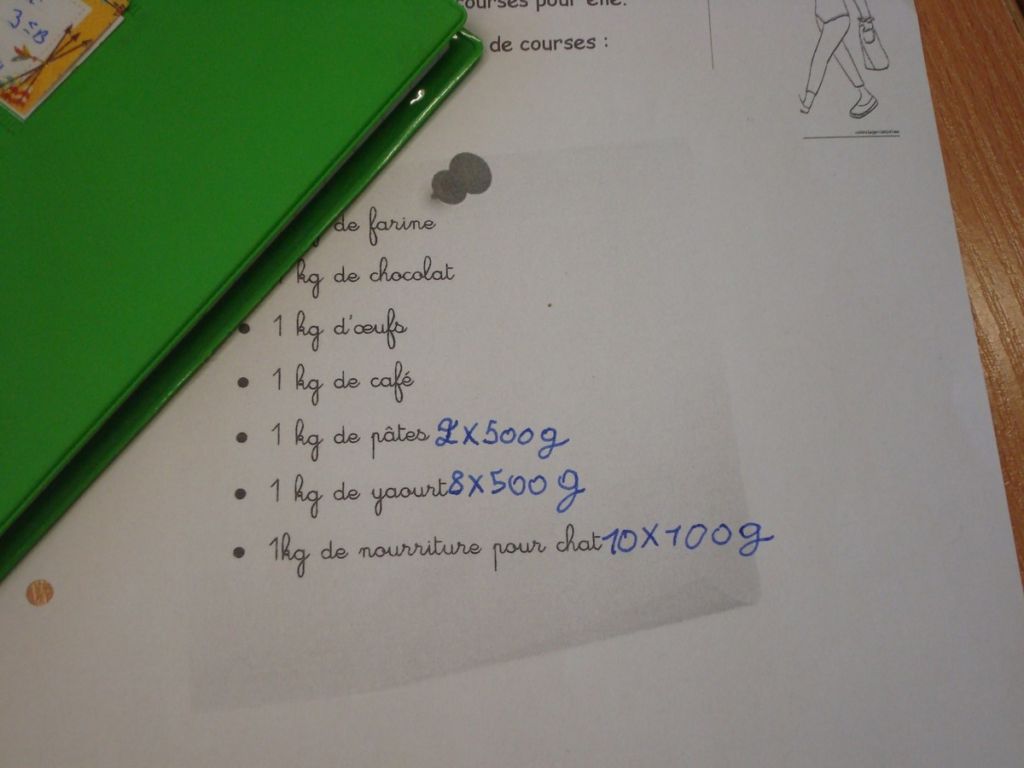 3 ≤ B
courses pour elle.
de courses :
de farine
kg de chocolat
• 1 kg d'œufs
• 1 kg de café
• 1 kg de pâtes 2X500g
• 1 kg de yaourt 8X500g
• 1kg de nourriture pour chat 10X100g